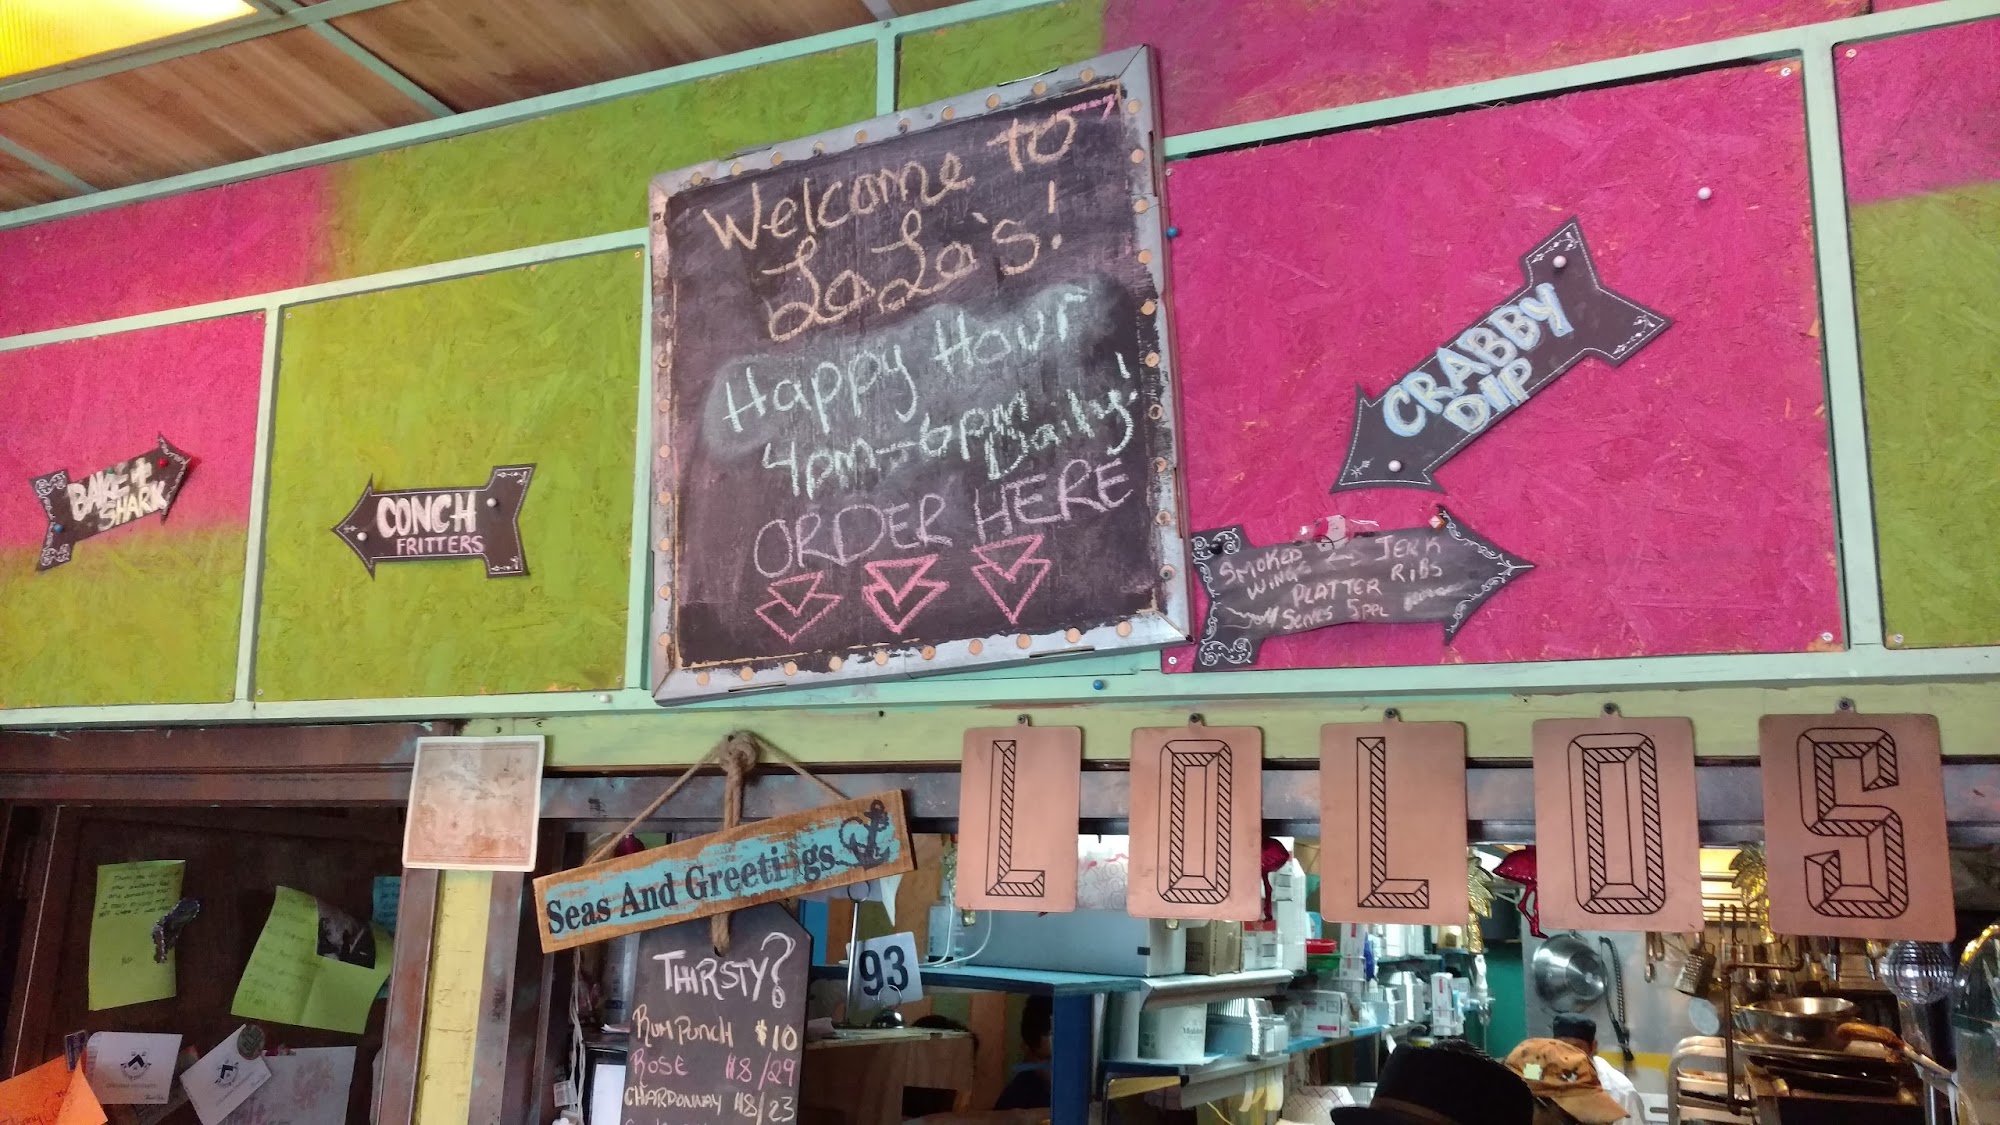 Welcome to
LoLo's!
Happy Hour
4pm-6pm
Daily!
ORDER HERE
BAKE +
SHARK
CONCH
FRITTERS
CRABBY
DIP
SMOKED
WING
JERK
RIBS
PLATTER
SERVES 5 PPL
LOLOS
Seas And Greetings
93
THIRSTY?
RUM PUNCH $10
ROSE $8/29
CHARDONNAY $8/23